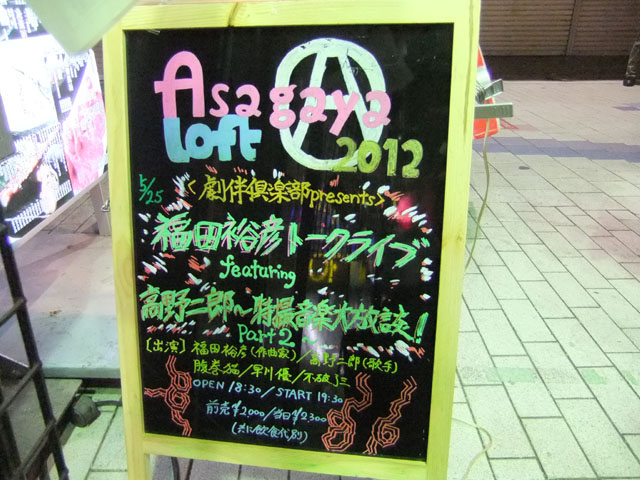 Asagaya
Loft A
2012
5/25
<劇伴倶楽部presents>
福田裕彦トークライブ
featuring
高野二郎～特撮音楽大放談！
Part 2
［出演］福田裕彦(作曲家)／高野二郎(歌手)
腹巻猫／早川優／不破了三
OPEN 18:30／START 19:30
前売¥2,000／当日¥2300
(共に飲食代別)